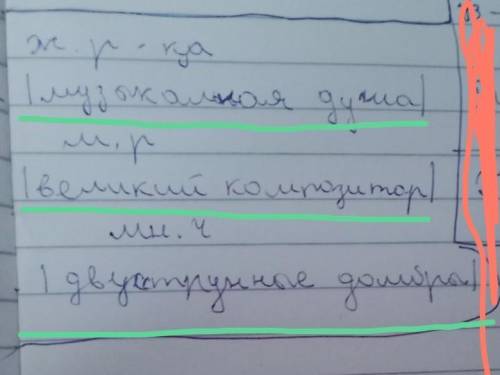 ж. р - ца
|музыкальная душа|
м. р
|великий композитор|
мн. ч
|двухструнные домбры|